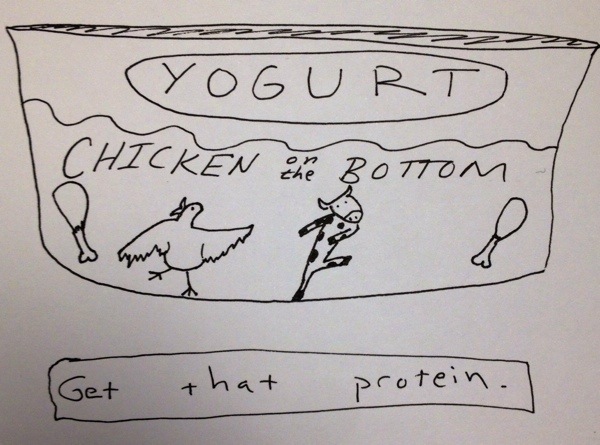 YOGURT
CHICKEN on the BOTTOM
Get that protein.